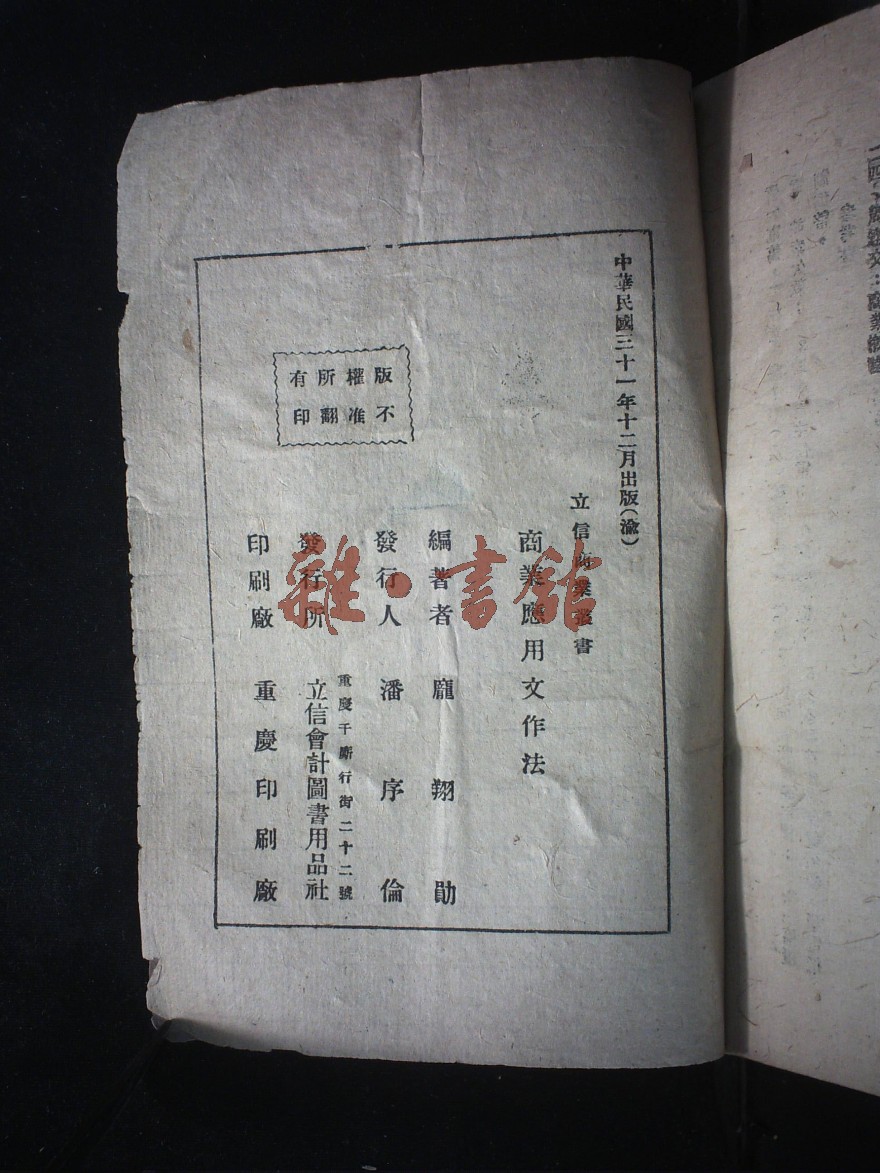 中華民國三十一年十二月出版(渝)
立信商業叢書
商業應用文作法
編著者 龐翔勛
發行人 潘序倫
重慶千廝行街二十二號
發行所 立信會計圖書用品社
印刷廠 重慶印刷廠
版權所有
不准翻印
雜·書館